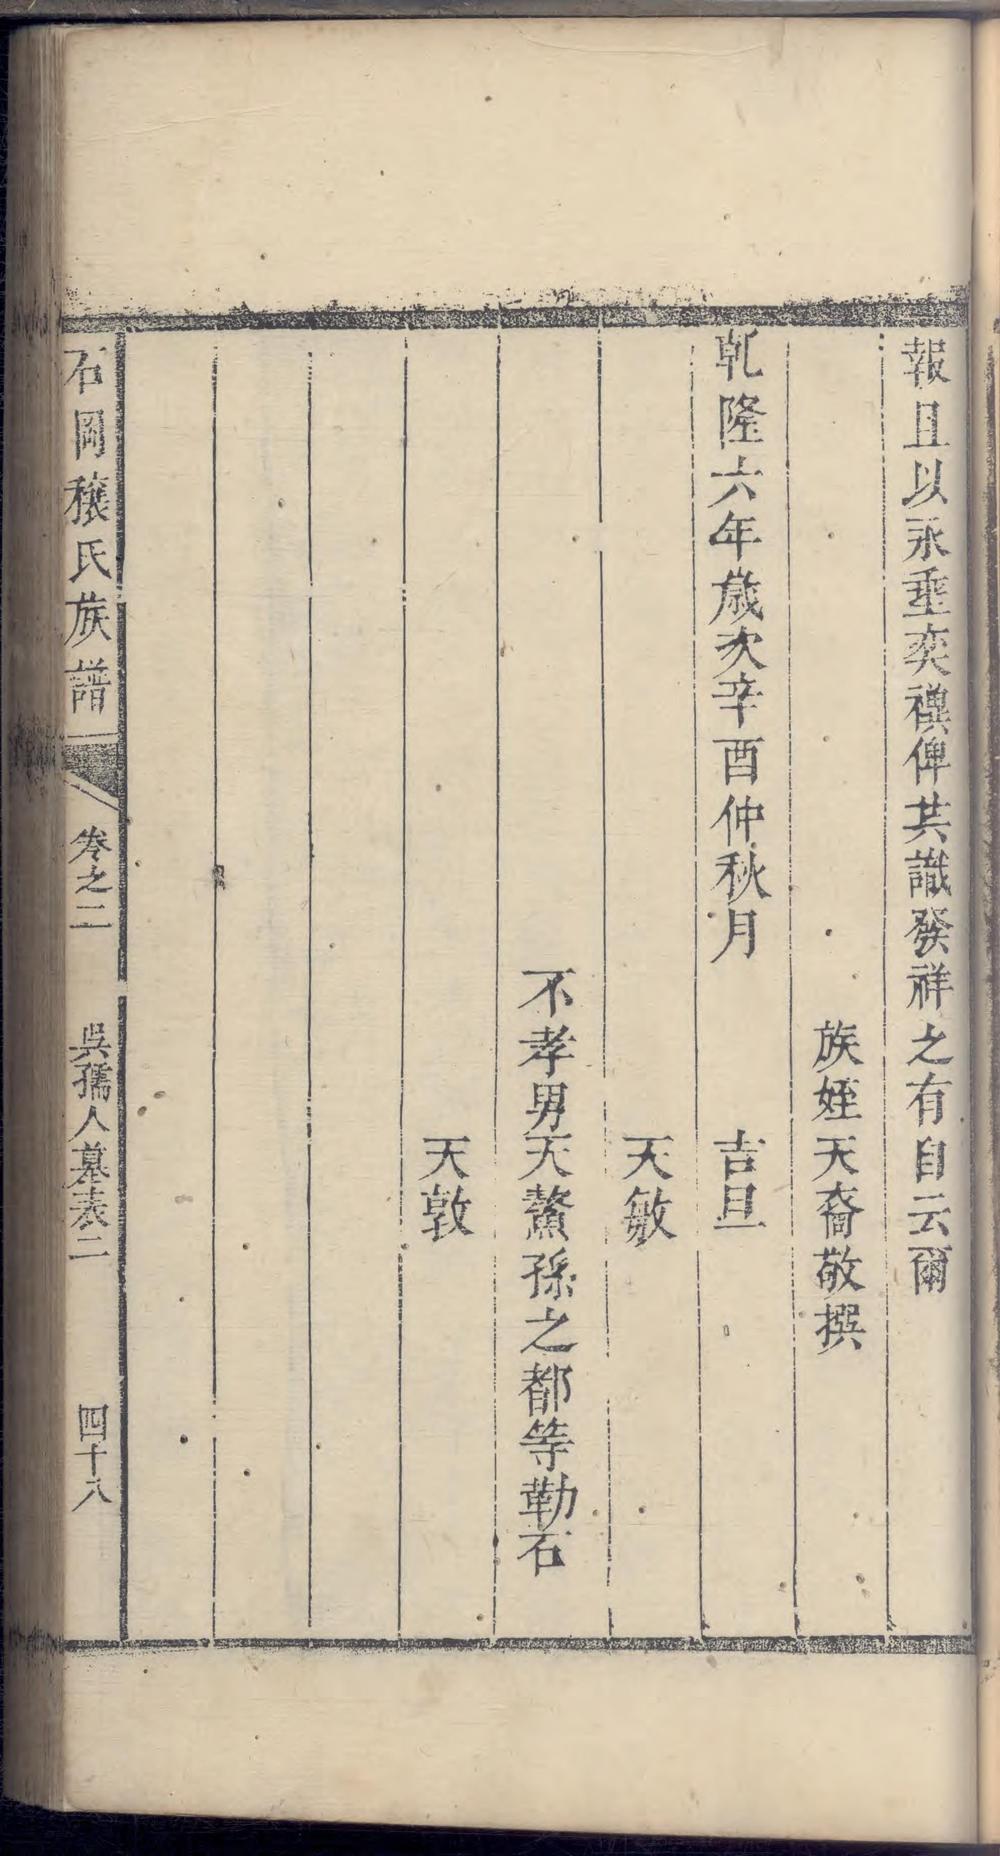 報且以永垂奕禩俾共識發祥之有自云爾
族姪天裔敬撰
乾隆六年歲次辛酉仲秋月吉旦
天敏
不孝男天鰲孫之都等勒石
天敦
石岡穣氏族譜
卷之二
吳孺人墓表二
四十八